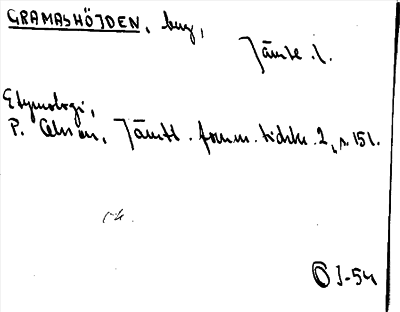 GRAMASHÖJDEN, berg,
Jämtl. l.
Etymologi,
P. Olsson, Jämtl. fornm. tidskr. 2, s. 151.
OJ-54